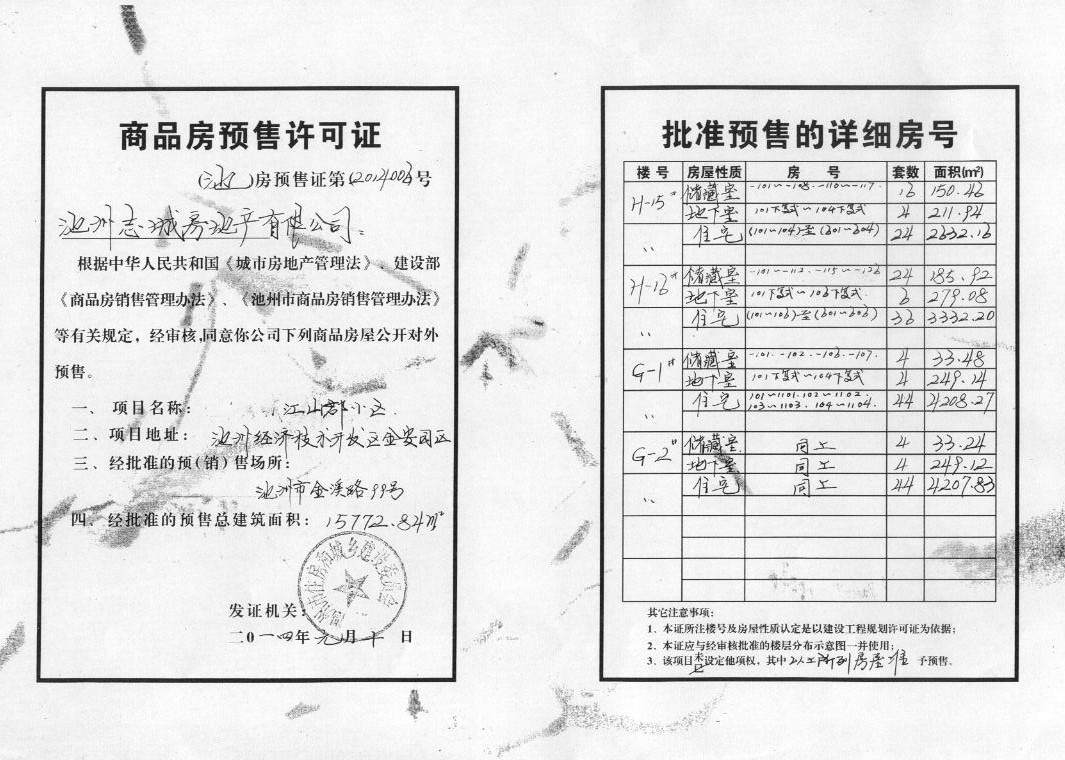 商品房预售许可证
(池)房预售证第(2014003)号
池州志城房地产有限公司:
根据中华人民共和国《城市房地产管理法》 建设部
《商品房销售管理办法》、《池州市商品房销售管理办法》
等有关规定，经审核,同意你公司下列商品房屋公开对外
预售。
一、 项目名称: 江山郡小区
二、项目地址: 池州经济技术开发区金安园区
三、经批准的预(销)售场所:
池州市金溪路99号
四、经批准的预售总建筑面积: 15772.84m²
池州市住房和城乡建设委员会
发证机关:
二0一四年元月十 日
批准预售的详细房号
楼号 房屋性质 房 号 套数 面积(m²)
H-15# 储藏室 -101~-108. -110~-117. 16 150.46
地下室 101下复式~104下复式 4 211.94
,, 住宅 (101~104)至(601~604) 24 2332.16
H-16# 储藏室 -101~-112. -115~-126 24 185.92
地下室 101下复式~106下复式. 6 279.08
,, 住宅 (101~106)至(601~606) 36 3332.20
G-1# 储藏室 -101. -102. -106. -107. 4 33.48
地下室 101下复式~104下复式 4 249.14
,, 住宅 101~1101. 102~1102. 103~1103. 104~1104. 44 4208.27
G-2# 储藏室 同上 4 33.24
地下室 同上 4 249.12
,, 住宅 同上 44 4207.83
其它注意事项:
1、本证所注楼号及房屋性质认定是以建设工程规划许可证为依据;
2、本证应与经审核批准的楼层分布示意图一并使用;
3、该项目未设定他项权，其中以上所列房屋准 予预售。